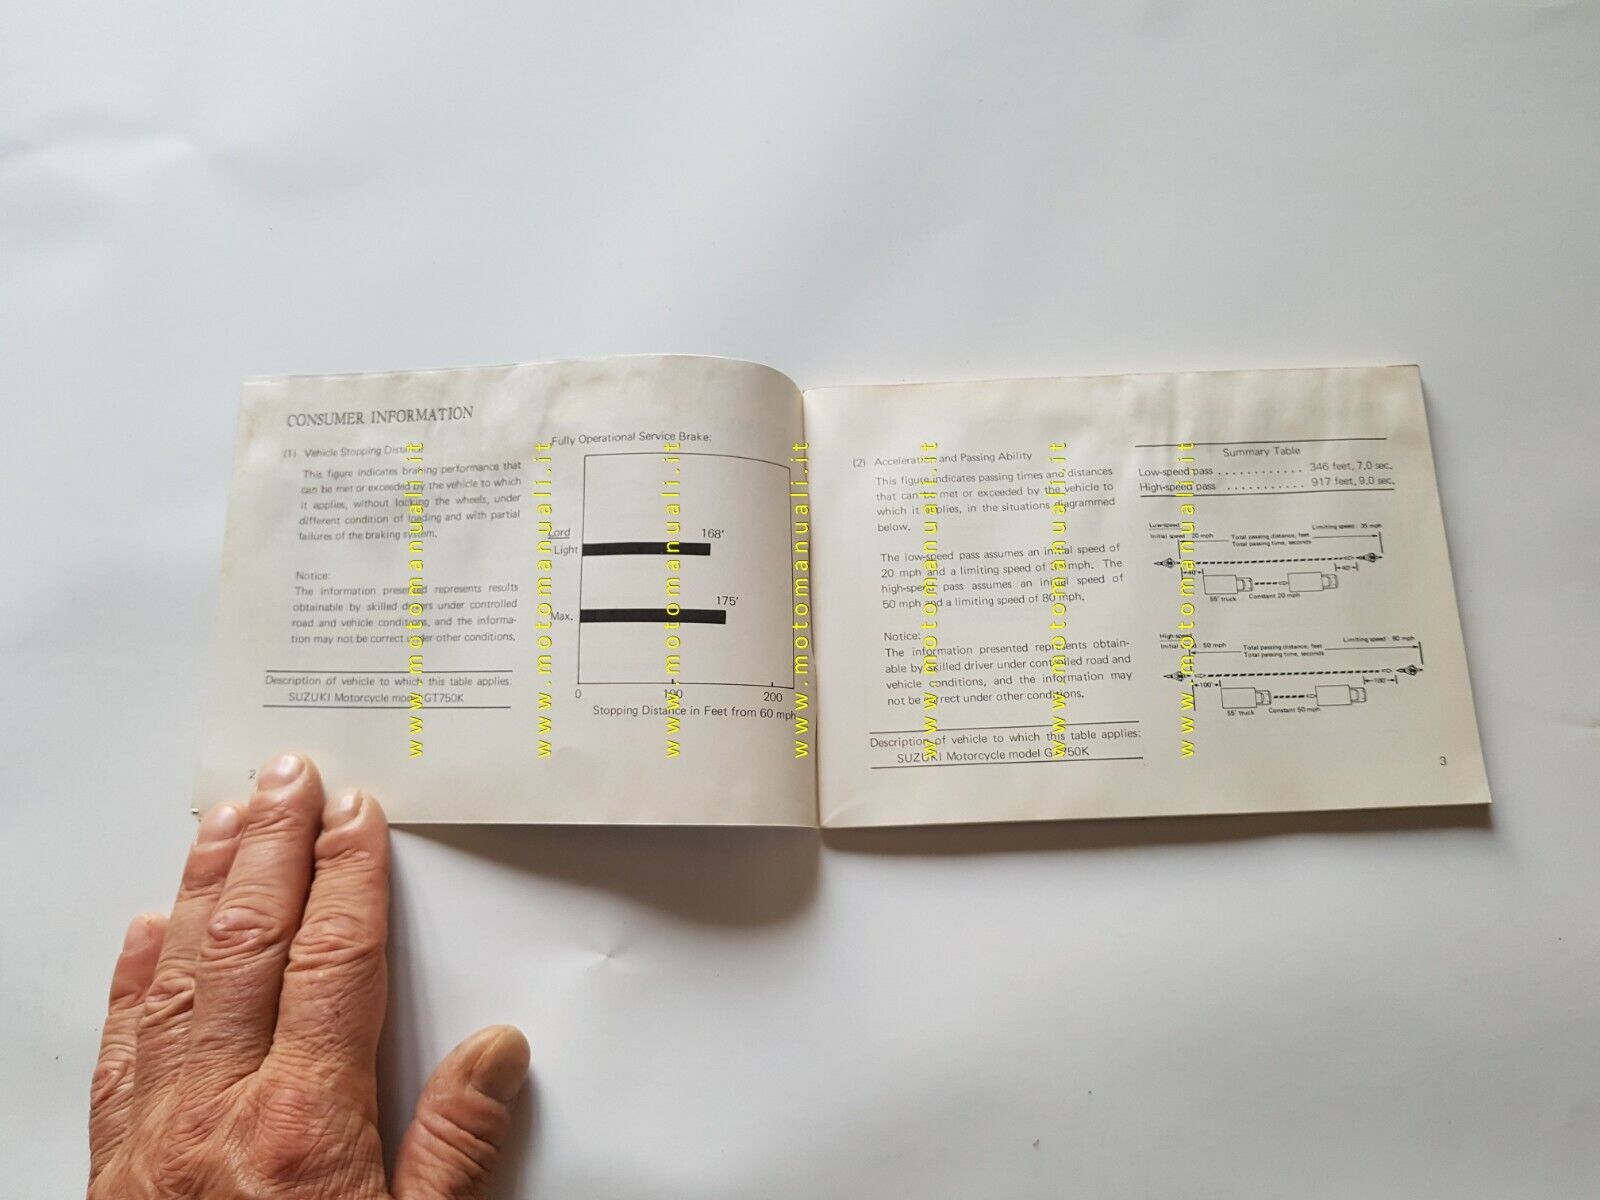 CONSUMER INFORMATION
(1) Vehicle Stopping Distance
This figure indicates braking performance that
can be met or exceeded by the vehicle to which
it applies, without locking the wheels, under
different condition of loading and with partial
failures of the braking system.
Notice:
The information presented represents results
obtainable by skilled drivers under controlled
road and vehicle conditions, and the informa-
tion may not be correct under other conditions.
Description of vehicle to which this table applies:
SUZUKI Motorcycle model GT750K
2
Fully Operational Service Brake:
Lord
Light
168'
Max.
175'
0 100 200
Stopping Distance in Feet from 60 mph
(2) Acceleration and Passing Ability
This figure indicates passing times and distances
that can be met or exceeded by the vehicle to
which it applies, in the situations diagrammed
below.
The low-speed pass assumes an initial speed of
20 mph and a limiting speed of mph. The
high-speed pass assumes an initial speed of
50 mph and a limiting speed of 80 mph.
Notice:
The information presented represents obtain-
able by skilled driver under controlled road and
vehicle conditions, and the information may
not be correct under other conditions.
Description of vehicle to which this table applies:
SUZUKI Motorcycle model GT750K
Summary Table
Low-speed pass . . . . . . . . . . . . 346 feet, 7.0 sec.
High-speed pass . . . . . . . . . . . 917 feet, 9.0 sec.
Low-speed
Initial speed : 20 mph
Limiting speed : 35 mph
Total passing distance, feet
Total passing time, seconds
40' 40'
55' truck Constant 20 mph
High-speed
Initial : 50 mph
Limiting speed : 80 mph
Total passing distance, feet
Total passing time, seconds
100' 100'
55' truck Constant 50 mph
3
www.motomanuali.it
www.motomanuali.it
www.motomanuali.it
www.motomanuali.it
www.motomanuali.it
www.motomanuali.it
www.motomanuali.it